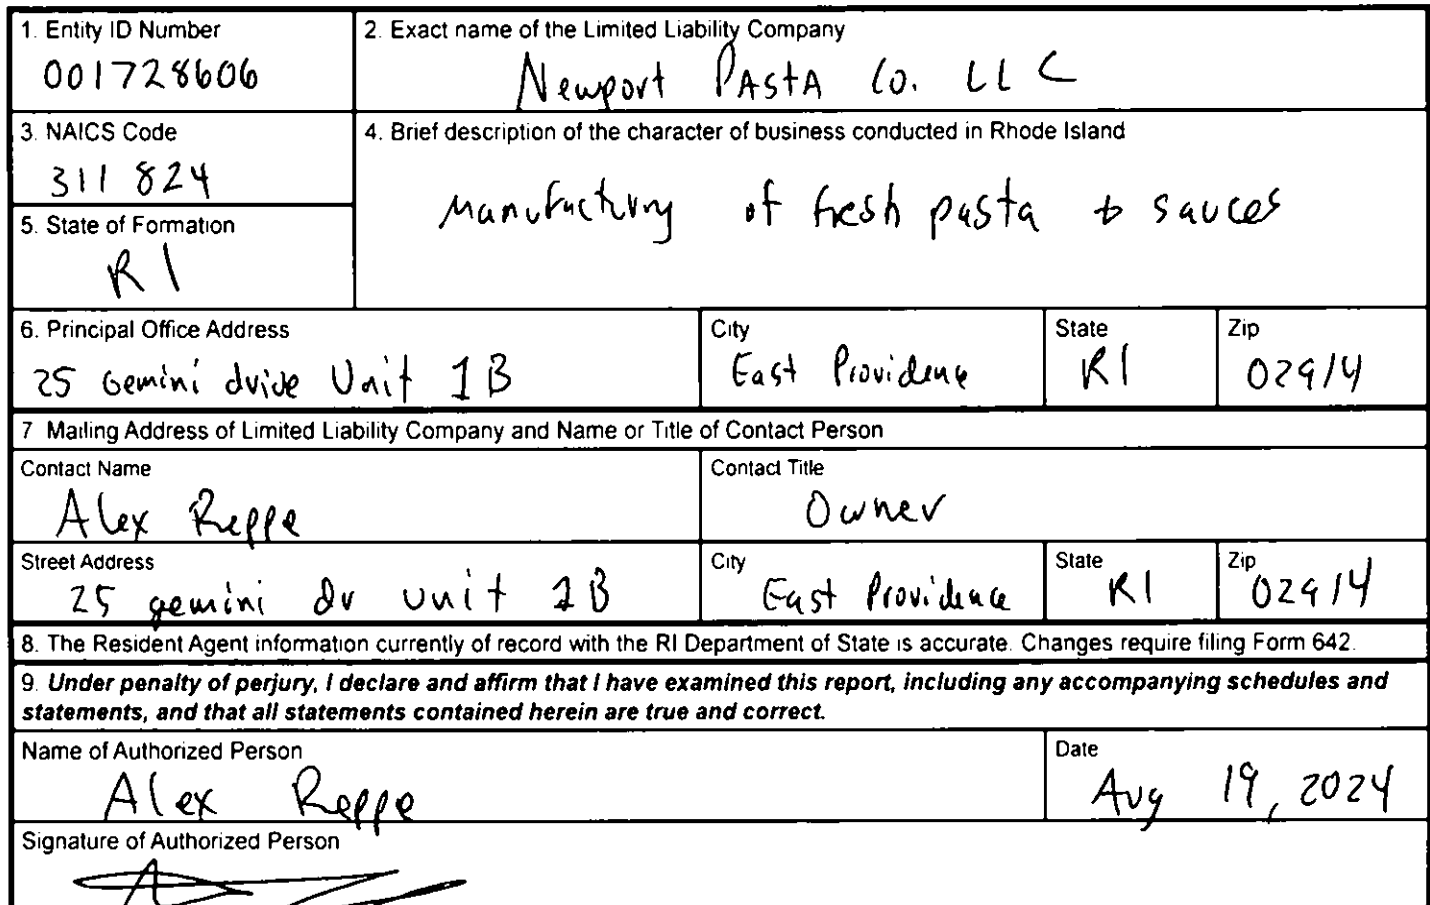 1. Entity ID Number
001728606
2. Exact name of the Limited Liability Company
Newport PAstA Co. LLC
3. NAICS Code
311 824
4. Brief description of the character of business conducted in Rhode Island
Manufacturing of fresh pasta + sauces
5. State of Formation
RI
6. Principal Office Address
25 Gemini drive Unit 1B
City
East Providence
State
RI
Zip
02914
7 Mailing Address of Limited Liability Company and Name or Title of Contact Person
Contact Name
Alex Reppe
Contact Title
Owner
Street Address
25 gemini dr unit 1B
City
East Providence
State
RI
Zip
02914
8. The Resident Agent information currently of record with the RI Department of State is accurate. Changes require filing Form 642.
9. Under penalty of perjury, I declare and affirm that I have examined this report, including any accompanying schedules and
statements, and that all statements contained herein are true and correct.
Name of Authorized Person
Alex Reppe
Date
Aug 19, 2024
Signature of Authorized Person